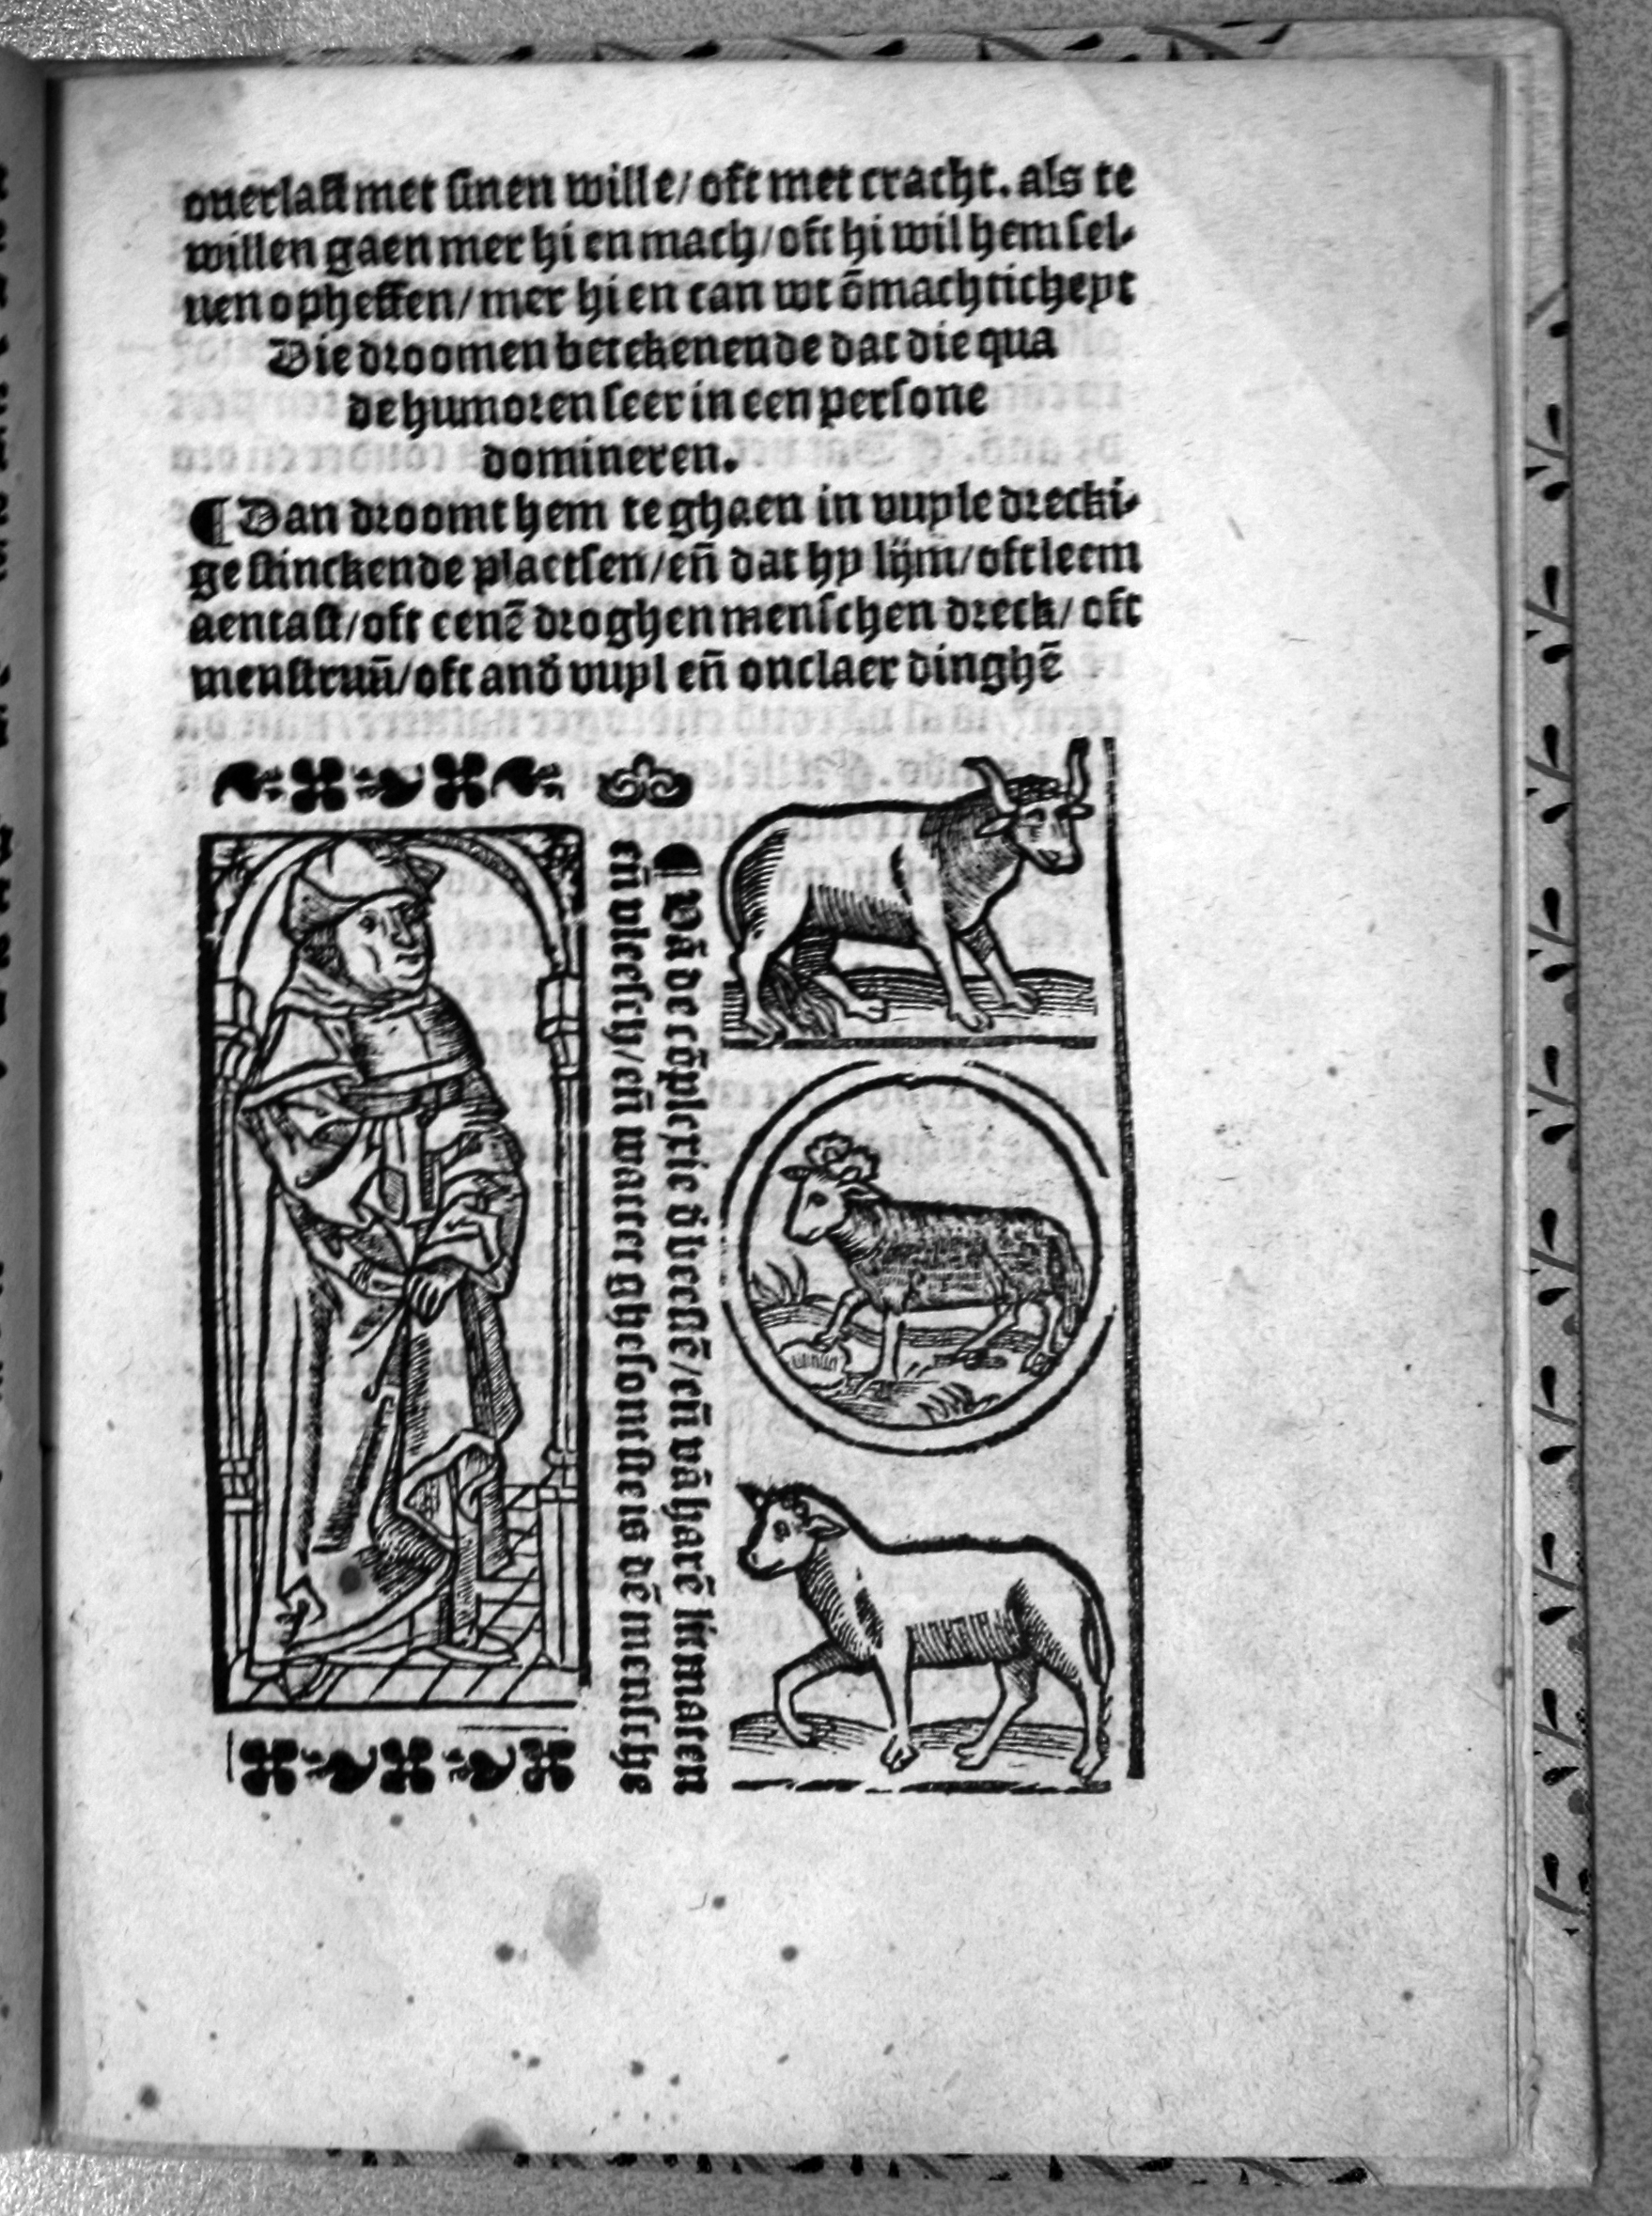 ouerlast met sinen wille/ oft met cracht. als te
willen gaen mer hi en mach/ oft hi wil hem sel-
uen opheffen/ mer hi en can wt ōmachticheyt
Die droomen betekenende dat die qua
de humoren seer in een persone
domineren.
¶ Dan droomt hem te ghaen in vuyle drecki-
ge stinckende plaetsen/ en̄ dat hy lijm/ oft leem
aentast/ oft eenē droghen menschen dreck/ oft
menstruū/ oft and̄ vuyl en̄ onclaer dinghē
¶ Vā de cōplexie d̄ beestē/ en̄ vā harē litmaten
en̄ vleesch/ en̄ watter ghesontste is dē mensche